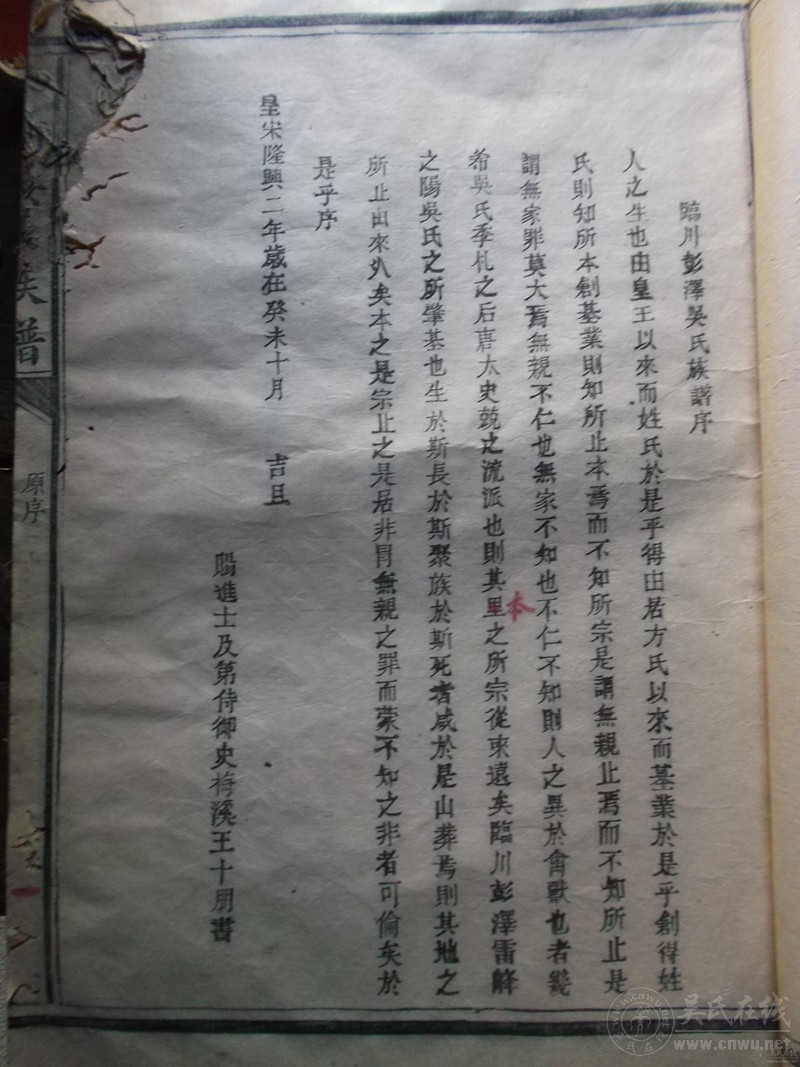 臨川彭澤吳氏族譜序
人之生也由皇王以來而姓氏於是乎得由居方氏以來而基業於是乎創得姓
氏則知所本創基業則知所止本焉而不知所宗是謂無親止焉而不知所止是
謂無家罪莫大焉無親不仁也無家不知也不仁不知則人之異於禽獸也者幾
希吳氏季札之后唐太史兢之流派也則其里之所宗從來遠矣臨川彭澤雷解
本
之陽吳氏之所肇基也生於斯長於斯聚族於斯死者咸於是山葬焉則其地之
所止由來久矣本之是宗止之是居非冐無親之罪而蒙不知之非者可倫矣於
是乎序
皇宋隆興二年歲在癸未十月 吉旦
賜進士及第侍御史梅溪王十朋書
族譜
原序
吴氏在线
www.cnwu.net